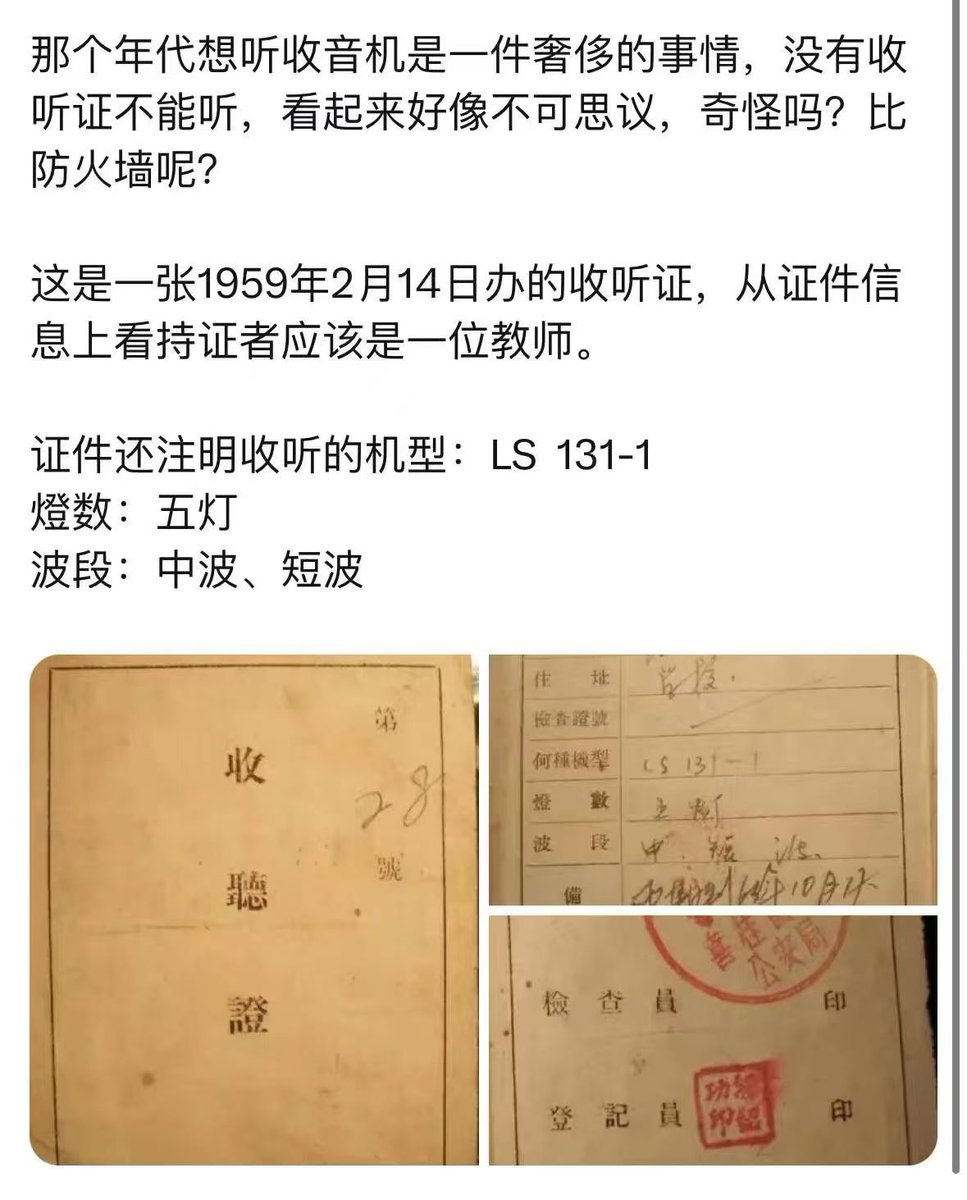 那个年代想听收音机是一件奢侈的事情，没有收
听证不能听，看起来好像不可思议，奇怪吗？比
防火墙呢？
这是一张1959年2月14日办的收听证，从证件信
息上看持证者应该是一位教师。
证件还注明收听的机型：LS 131-1
燈数：五灯
波段：中波、短波
第
28
號
收
聽
證
住 址
檢查證號
何種機型 LS 131-1
燈 數 五灯
波 段 中.短波.
備
公安局
檢查員 印
登記員 印